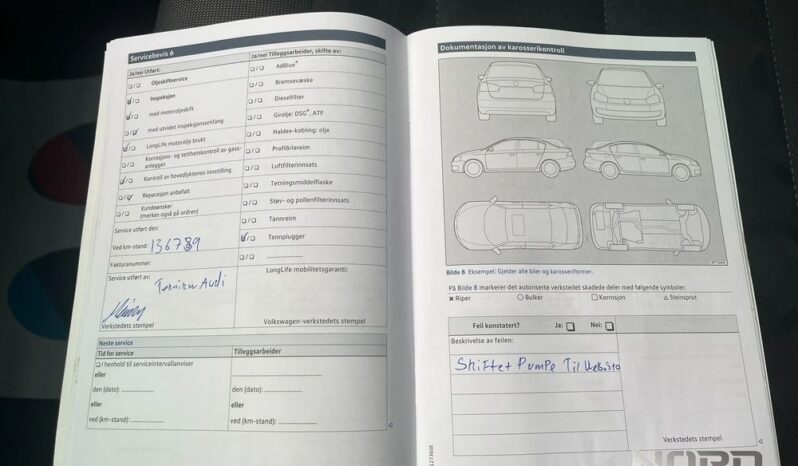 Servicebevis 6
Ja/nei Utført:
Oljeskiftservice
Inspeksjon
med motoroljeskift
med utvidet inspeksjonsomfang
LongLife motorolje brukt
Korrosjons- og tetthetskontroll av gass-
anlegget
Kontroll av hovedlyktenes innstilling
Reparasjon anbefalt
Kundeønsker
(merkes også på ordren)
Service utført den:
Ved km-stand: 136789
Fakturanummer:
Service utført av: Tekniker Audi
Verkstedets stempel
Ja/nei Tilleggsarbeider, skifte av:
AdBlue®
Bremsevæske
Dieselfilter
Girolje: DSG®, ATF
Haldex-kobling: olje
Profilkilereim
Luftfilterinnsats
Tetningsmiddelflaske
Støv- og pollenfilterinnsats
Tannreim
Tennplugger
LongLife mobilitetsgaranti:
Volkswagen-verkstedets stempel
Neste service
Tid for service
Tilleggsarbeider
i henhold til serviceintervallanviser
eller
den (dato):
den (dato):
eller
eller
ved (km-stand):
ved (km-stand):
Dokumentasjon av karosserikontroll
Bilde 8 Eksempel: Gjelder alle biler og karosseriformer.
På Bilde 8 markerer det autoriserte verkstedet skadede deler med følgende symboler:
× Riper ○ Bulker □ Korrosjon △ Steinsprut
Feil konstatert? Ja: Nei:
Beskrivelse av feilen:
Skiftet Pumpe Til Webasto
Verkstedets stempel
NORD